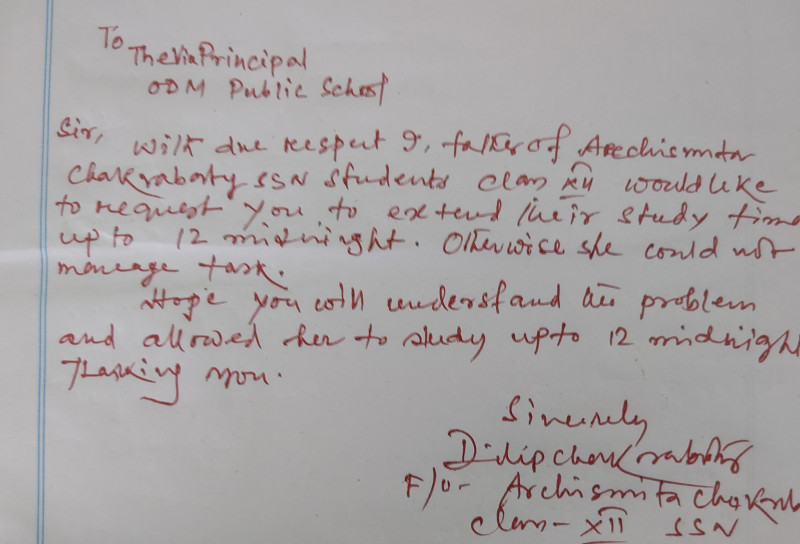 To
The Via Principal
ODM Public School
Sir, With due respect I, father of Archismita
Chakrabarty SSN students class XII would like
to request you to extend their study time
up to 12 midnight. Otherwise she could not
manage task.
Hope you will understand the problem
and allowed her to study upto 12 midnight
Thanking you.
Sincerely
Dilip Chakrabarty
F/O- Archismita Chakrab
class- XII SSN